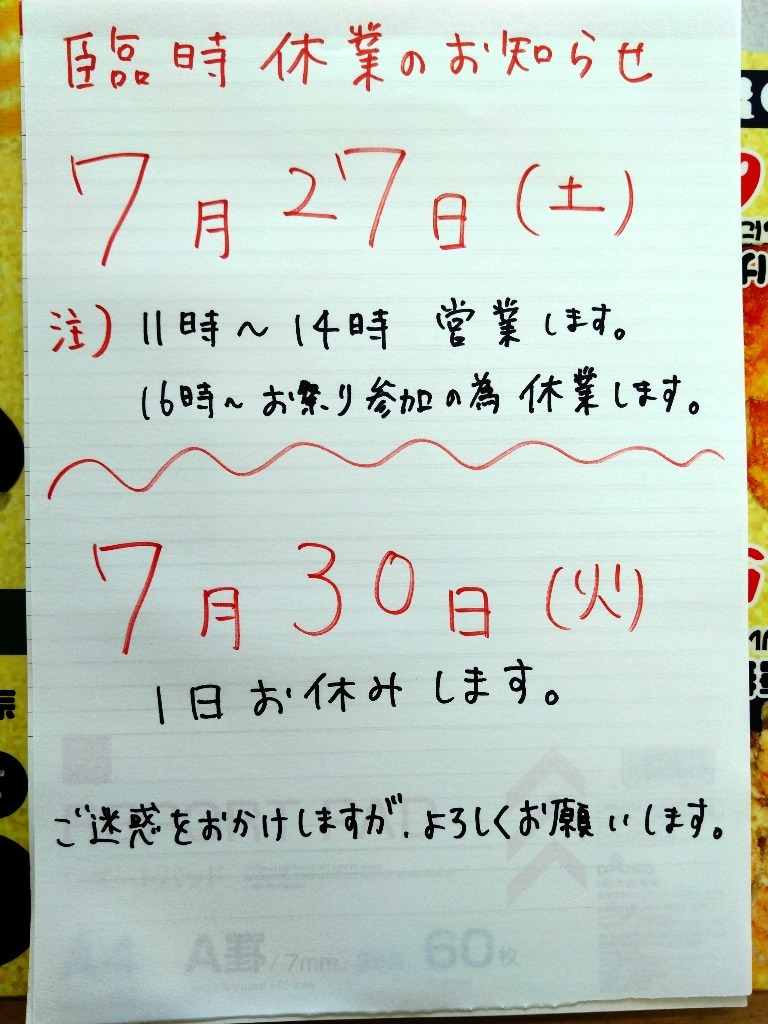 臨時休業のお知らせ
7月27日(土)
注) 11時~14時 営業します。
16時~お祭り参加の為 休業します。
7月30日(火)
1日お休みします。
ご迷惑をおかけしますが、よろしくお願いします。
A罫/7mm/
60枚